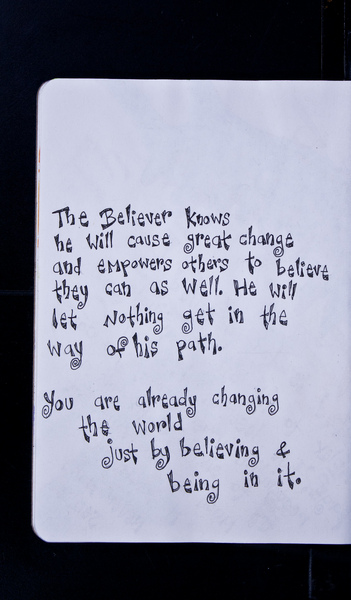 The Believer knows
he will cause great change
and empowers others to believe
they can as well. He will
let nothing get in the
way of his path.
You are already changing
the world
just by believing &
being in it.